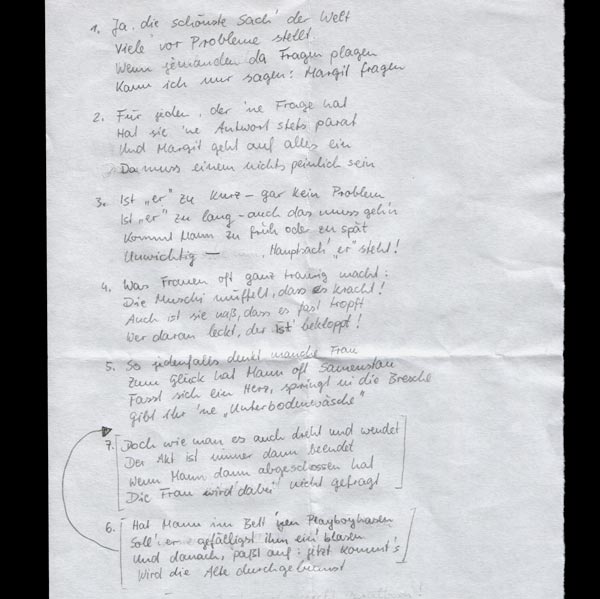 1. Ja, die schönste Sach' der Welt
Viele vor Probleme stellt.
Wenn jemanden da Fragen plagen
Kann ich nur sagen: Margit fragen
2. Für jeden, der 'ne Frage hat
Hat sie 'ne Antwort stets parat
Und Margit geht auf alles ein
Da muss einem nichts peinlich sein
3. Ist „er" zu kurz – gar kein Problem
Ist „er" zu lang – auch das muss geh'n
Kommt Mann zu früh oder zu spät
Unwichtig – , Hauptsach' „er" steht!
4. Was Frauen oft ganz traurig macht:
Die Muschi müffelt, dass es kracht!
Auch ist sie naß, dass es fast tropft
Wer daran leckt, der ist bekloppt!
5. So jedenfalls denkt manche Frau
Zum Glück hat Mann oft Samenstau
Fasst sich ein Herz, springt in die Bresche
Gibt ihr 'ne „Unterbodenwäsche"
7. Doch wie man es auch dreht und wendet
Der Akt ist immer dann beendet
Wenn Mann dann abgeschossen hat
Die Frau wird dabei nicht gefragt
6. Hat Mann im Bett 'nen Playboyhasen
Soll er gefälligst ihm ein' blasen
Und danach, paßt auf: jetzt kommt's
Wird die Alte durchgebumst